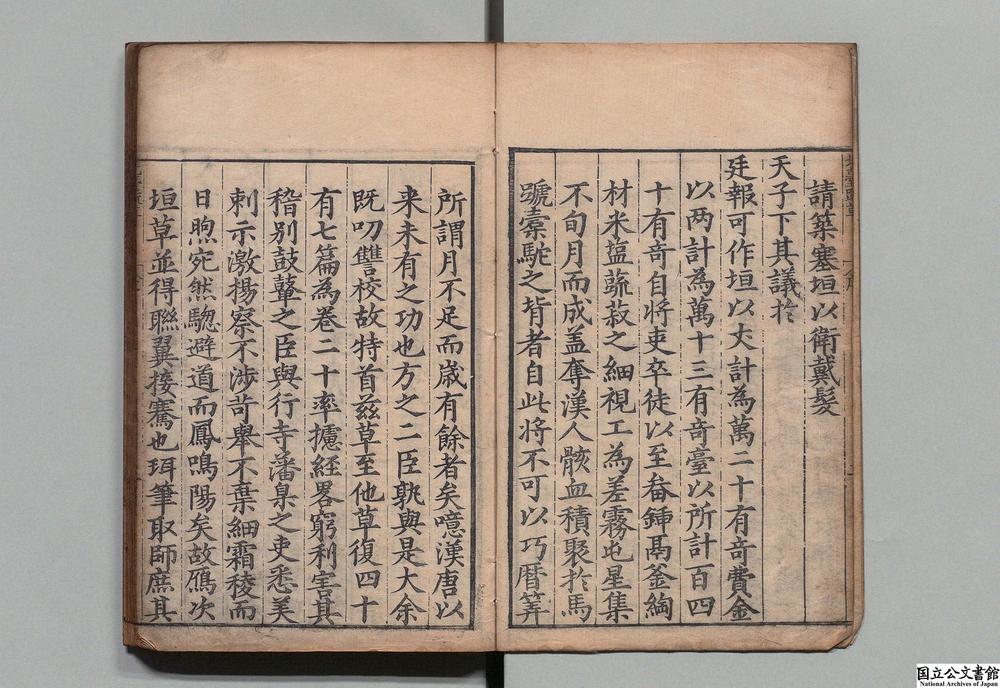 請築塞垣以衛戴髮
天子下其議於
廷報可作垣以丈計為萬二十有奇費金
以两計為萬十三有奇臺以所計百四
十有奇自將吏卒徒以至畚鍤鬲釜綯
材米塩蔬菽之細視工為差霧屯星集
不旬月而成盖奪漢人骸血積聚於馬
蹏橐駝之背者自此将不可以巧曆筭
所謂月不足而歲有餘者矣噫漢唐以
来未有之功也方之二臣孰與是大余
既叨讐校故特首兹草至他草復四十
有七篇為卷二十率攄経畧窮利害其
稽别鼓鼙之臣與行寺藩臬之吏悉美
刺示激揚察不涉苛舉不棄細霜稜而
日煦宛然驄避道而鳳鳴陽矣故鴈次
垣草並得聮翼接騫也珥筆取師庶其
国立公文書館
National Archives of Japan